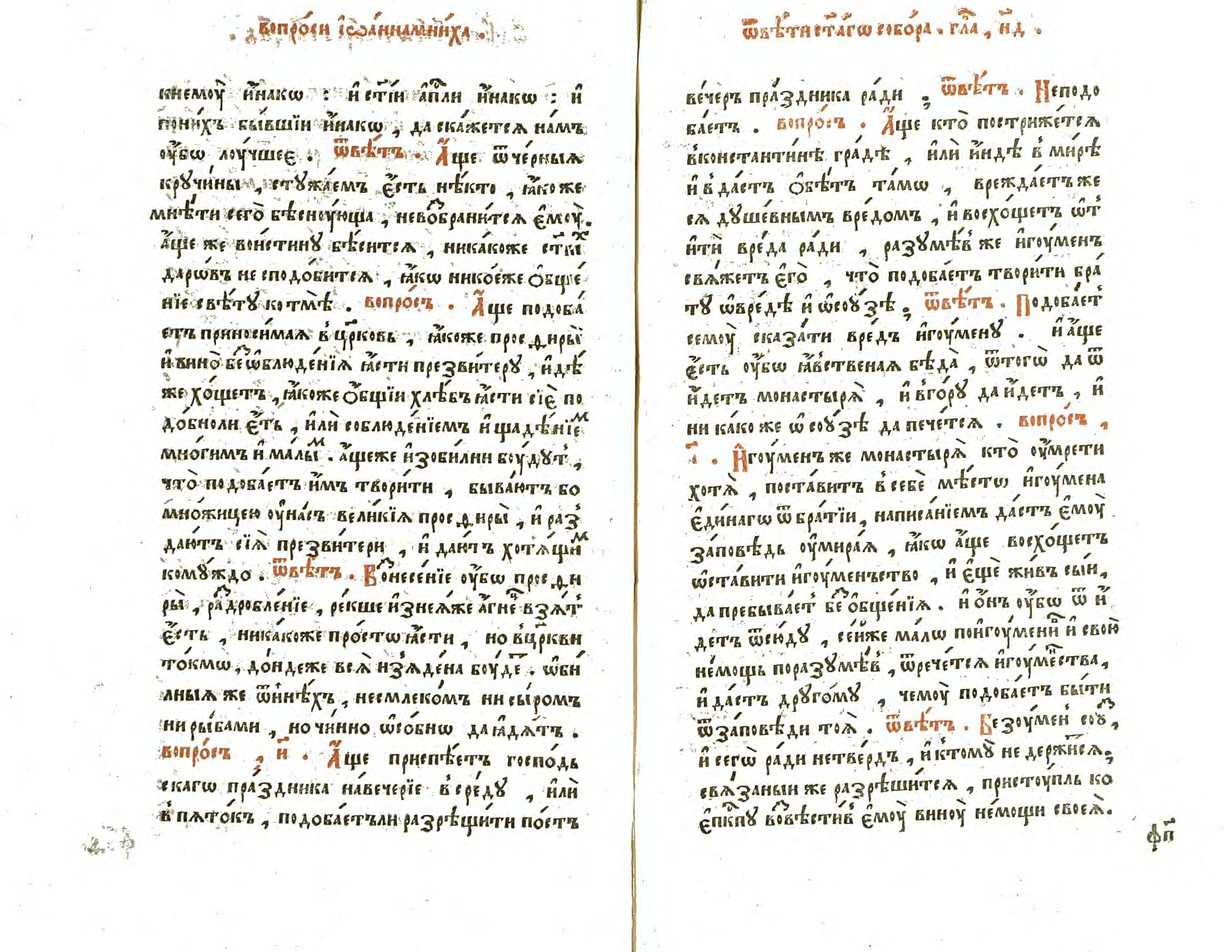 вопро́си і҆ѡа́ннамни́ха .
кнемоу̀ и҆́накѡ : и҆ ст҃і́и а҆пⷭ҇ли и҆́накѡ : и҆
пони́хъ бы́вшїи и҆́накѡ , да ска́жетсѧ на́мъ
оу҆́бѡ лоу́чшеє . ѿвѣ́тъ . А҆́ще ѿ че́рныѧ
кручи́ны , стужа́емъ є҆́сть нѣ́кто , ꙗ҆́коже
мнѣ́ти сего̀ бѣсноую́ща , невозбрани́тсѧ є҆моу̀ .
а҆́ще же вои́стину бѣси́тсѧ , ника́коже ст҃ы́хъ
даро́въ не сподо́битсѧ , ꙗ҆́кѡ нико́еже ѻ҆бще́
нїе свѣ́ту котмѣ̀ . вопро́съ . А҆́ще подоба́
етъ приноси́маѧ в цр҃ковь , ꙗ҆́коже просѳиры̀
и҆ вино̀ беѡблюде́нїѧ ꙗ҆́сти презви́теру , и҆дѣ́
же хо́щетъ , ꙗ҆́коже ѻ҆́бщїи хлѣ́бъ ꙗ҆́сти сїѐ по
до́бноли є҆́сть , и҆лѝ соблюде́нїемъ и҆ щадѣ́нїемъ
мно́гимъ и҆ ма́лымъ . а҆́щеже и҆зоби́лни боу́дутъ ,
что̀ подоба́етъ и҆́мъ твори́ти , быва́ютъ бо
мно́жицею оу҆на́съ вели́кїѧ просѳиры̀ , и҆ раз
даю́тъ сїѧ̀ презви́тери , и҆ даю́тъ хотѧ́щимъ
кому́ждо . ѿвѣ́тъ . Вонесе́нїе оу҆́бѡ просѳи
ры̀ , раздробле́нїе , ре́кше и҆знеѧ́же а҆́гнецъ взѧ́тъ
є҆́сть , ника́коже про́стѡ ꙗ҆́сти , но в цр҃кви
то́кмѡ , до́ндеже всѧ̀ и҆з̾ѧдена боу́детъ . ѡ҆би
лныѧ же ѿи́нѣхъ , несмлеко́мъ ни сы́ромъ
ни ры́бами , но чи́нно ѡ҆со́бнѡ да ꙗ҆дѧ́тъ .
вопро́съ , и҃ . А҆́ще приспѣ́етъ госпо́дь
скагѡ пра́здника наве́черїе в сре́ду , и҆лѝ
в пѧто́къ , подоба́етъли разрѣши́ти по́стъ
ѿвѣ́ти ст҃а́гѡ собо́ра . гла̀ , н҃д .
ве́черъ пра́здника ра́ди , ѿвѣ́тъ . Неподо
ба́етъ . вопро́съ . А҆́ще кто̀ постриже́тсѧ
в константи́нѣ гра́дѣ , и҆лѝ и҆́ндѣ в ми́рѣ
и҆ в да́стъ ѻ҆бѣ́тъ та́мѡ , врежда́етъ же
сѧ душе́внымъ вре́домъ , и҆ восхо́щетъ ѿт
итѝ вреда̀ ра́ди , разумѣ́в же и҆гоу́менъ
свѧ́жетъ є҆го̀ , что̀ подоба́етъ твори́ти бра́
ту ѡ҆вре́дѣ и҆ ѡ҆соу́зѣ , ѿвѣ́тъ . Подоба́етъ
семоу̀ сказа́ти вре́дъ и҆гоу́мену . и҆ а҆́ще
є҆́сть оу҆́бѡ ꙗ҆́вственаѧ бѣда̀ , ѿтогѡ̀ да ѿ
и҆́детъ монастырѧ̀ , и҆ в го́ру да и҆́детъ , и҆
ни ка́ко же ѡ҆ соу́зѣ да пече́тсѧ . вопро́съ ,
і҃ . И҆гоу́менъ же монастырѧ̀ кто̀ оу҆мре́ти
хотѧ̀ , поста́витъ в себѐ мѣ́стѡ и҆гоу́мена
є҆ди́нагѡ ѿ бра́тїи , написа́нїемъ да́стъ є҆моу̀
за́повѣдь оу҆мира́ѧ , ꙗ҆́кѡ а҆́ще восхо́щетъ
ѡ҆ста́вити и҆гоу́менъство , и҆ є҆щѐ жи́въ сы́и ,
да пребыва́етъ без̾ѻбще́нїѧ . и҆ ѻ҆́нъ оу҆́бѡ ѿ и҆́
детъ ѿсю́ду , се́йже ма́лѡ поигоу́менивъ и҆ свою̀
не́мощь поразумѣ́въ , ѿрече́тсѧ и҆гоу́менства ,
и҆ да́стъ друго́му , чемоу̀ подоба́етъ бы́ти
ѿ за́повѣди тоѧ̀ . ѿвѣ́тъ . Безоу́менъ соу́дъ ,
и҆ сегѡ̀ ра́ди нетве́рдъ , и҆ ктому̀ не держи́сѧ ,
свѧ́заныи же разрѣши́тсѧ , пристоу́пль ко
є҆пⷭ҇кпу вовѣсти́въ є҆моу̀ виноу̀ не́мощи своеѧ̀ .
фп҃